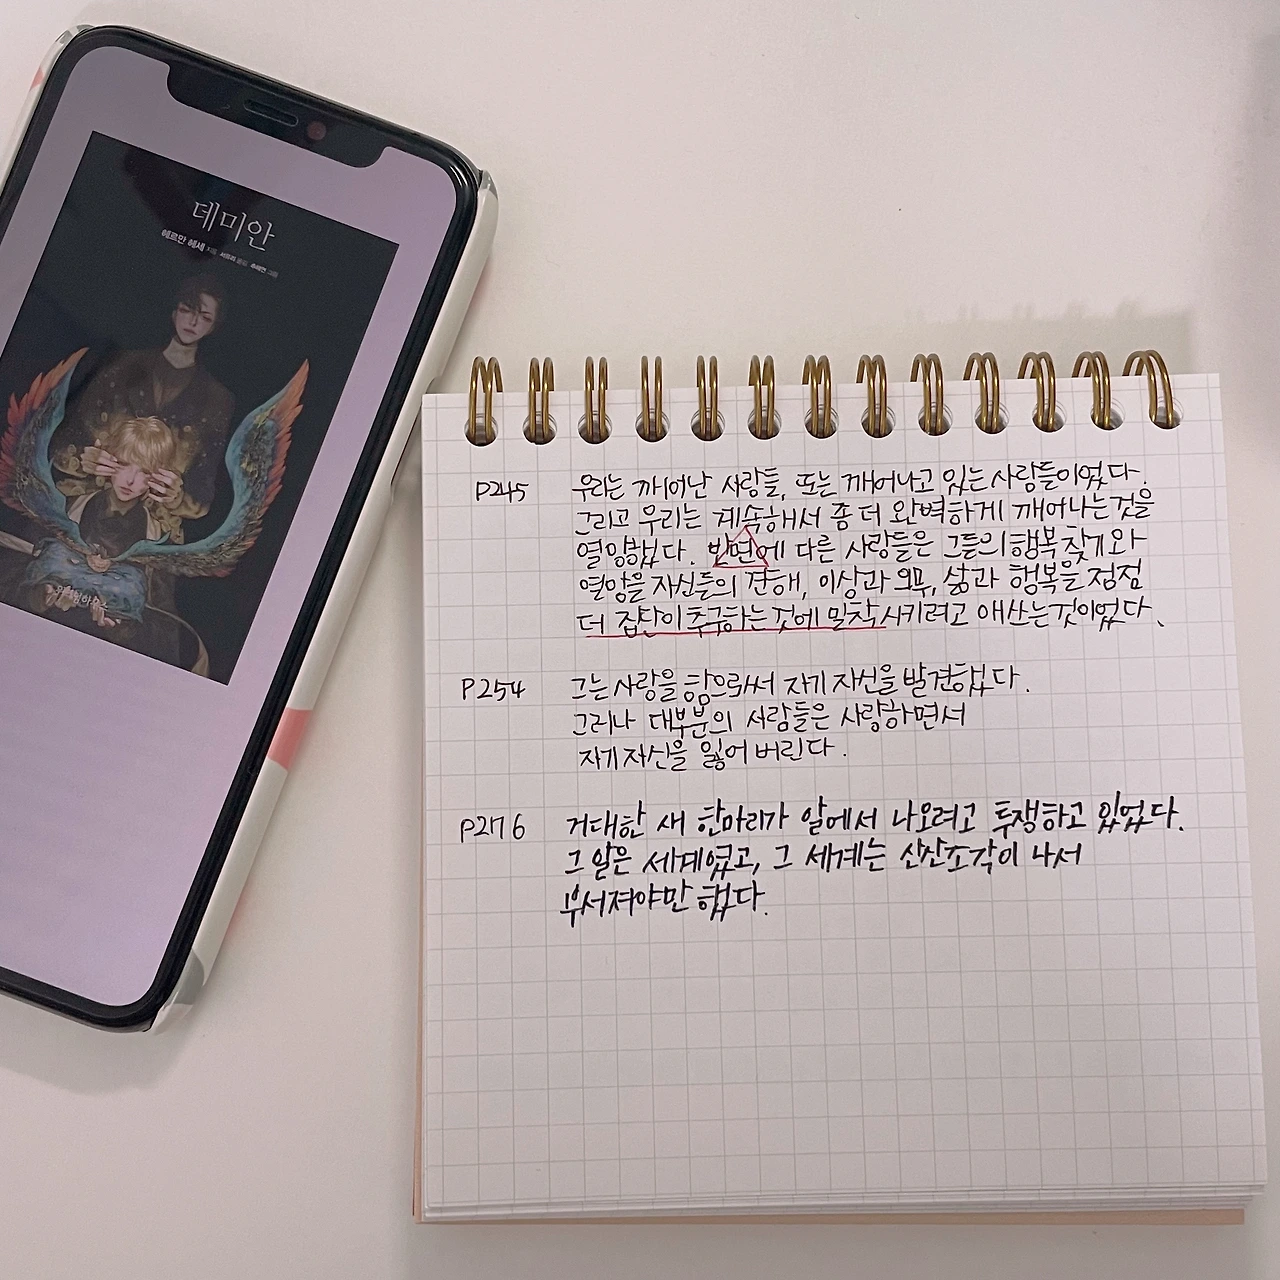 데미안
헤르만 헤세 지음
P245 우리는 깨어난 사람들, 또는 깨어나고 있는 사람들이었다.
그리고 우리는 계속해서 좀 더 완벽하게 깨어나는것을
열망했다. 반면에 다른 사람들은 그들의 행복 찾기와
열망을 자신들의 견해, 이상과 의무, 삶과 행복을 점점
더 집단이 추구하는 것에 밀착시키려고 애쓰는것이었다.
P254 그는 사랑을 함으로써 자기 자신을 발견했다.
그러나 대부분의 사람들은 사랑하면서
자기 자신을 잃어 버린다.
P276 거대한 새 한마리가 알에서 나오려고 투쟁하고 있었다.
그 알은 세계였고, 그 세계는 산산조각이 나서
부서져야만 했다.